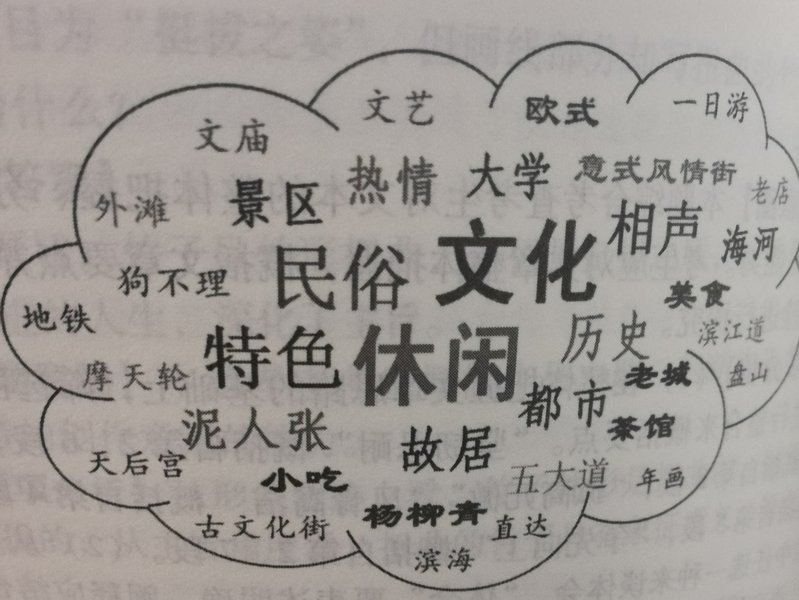 文艺
欧式
一日游
文庙
热情
大学
意式风情街
老店
外滩
景区
相声
海河
狗不理
民俗
文化
美食
地铁
特色
休闲
历史
滨江道
摩天轮
都市
老城
盘山
泥人张
故居
茶馆
天后宫
小吃
五大道
年画
古文化街
杨柳青
直达
滨海